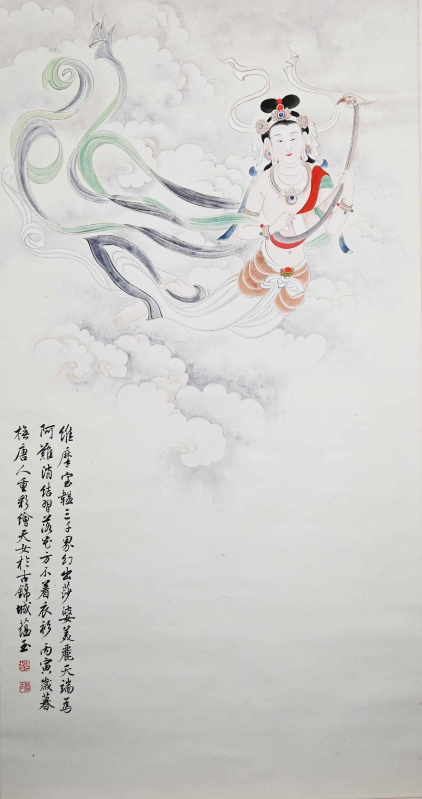 維摩室韞三千界幻出莎婆美麗天端為
阿難消結習落花方不著衣衫丙寅歲暮
橅唐人重彩繪天女於古錦城蘊玉